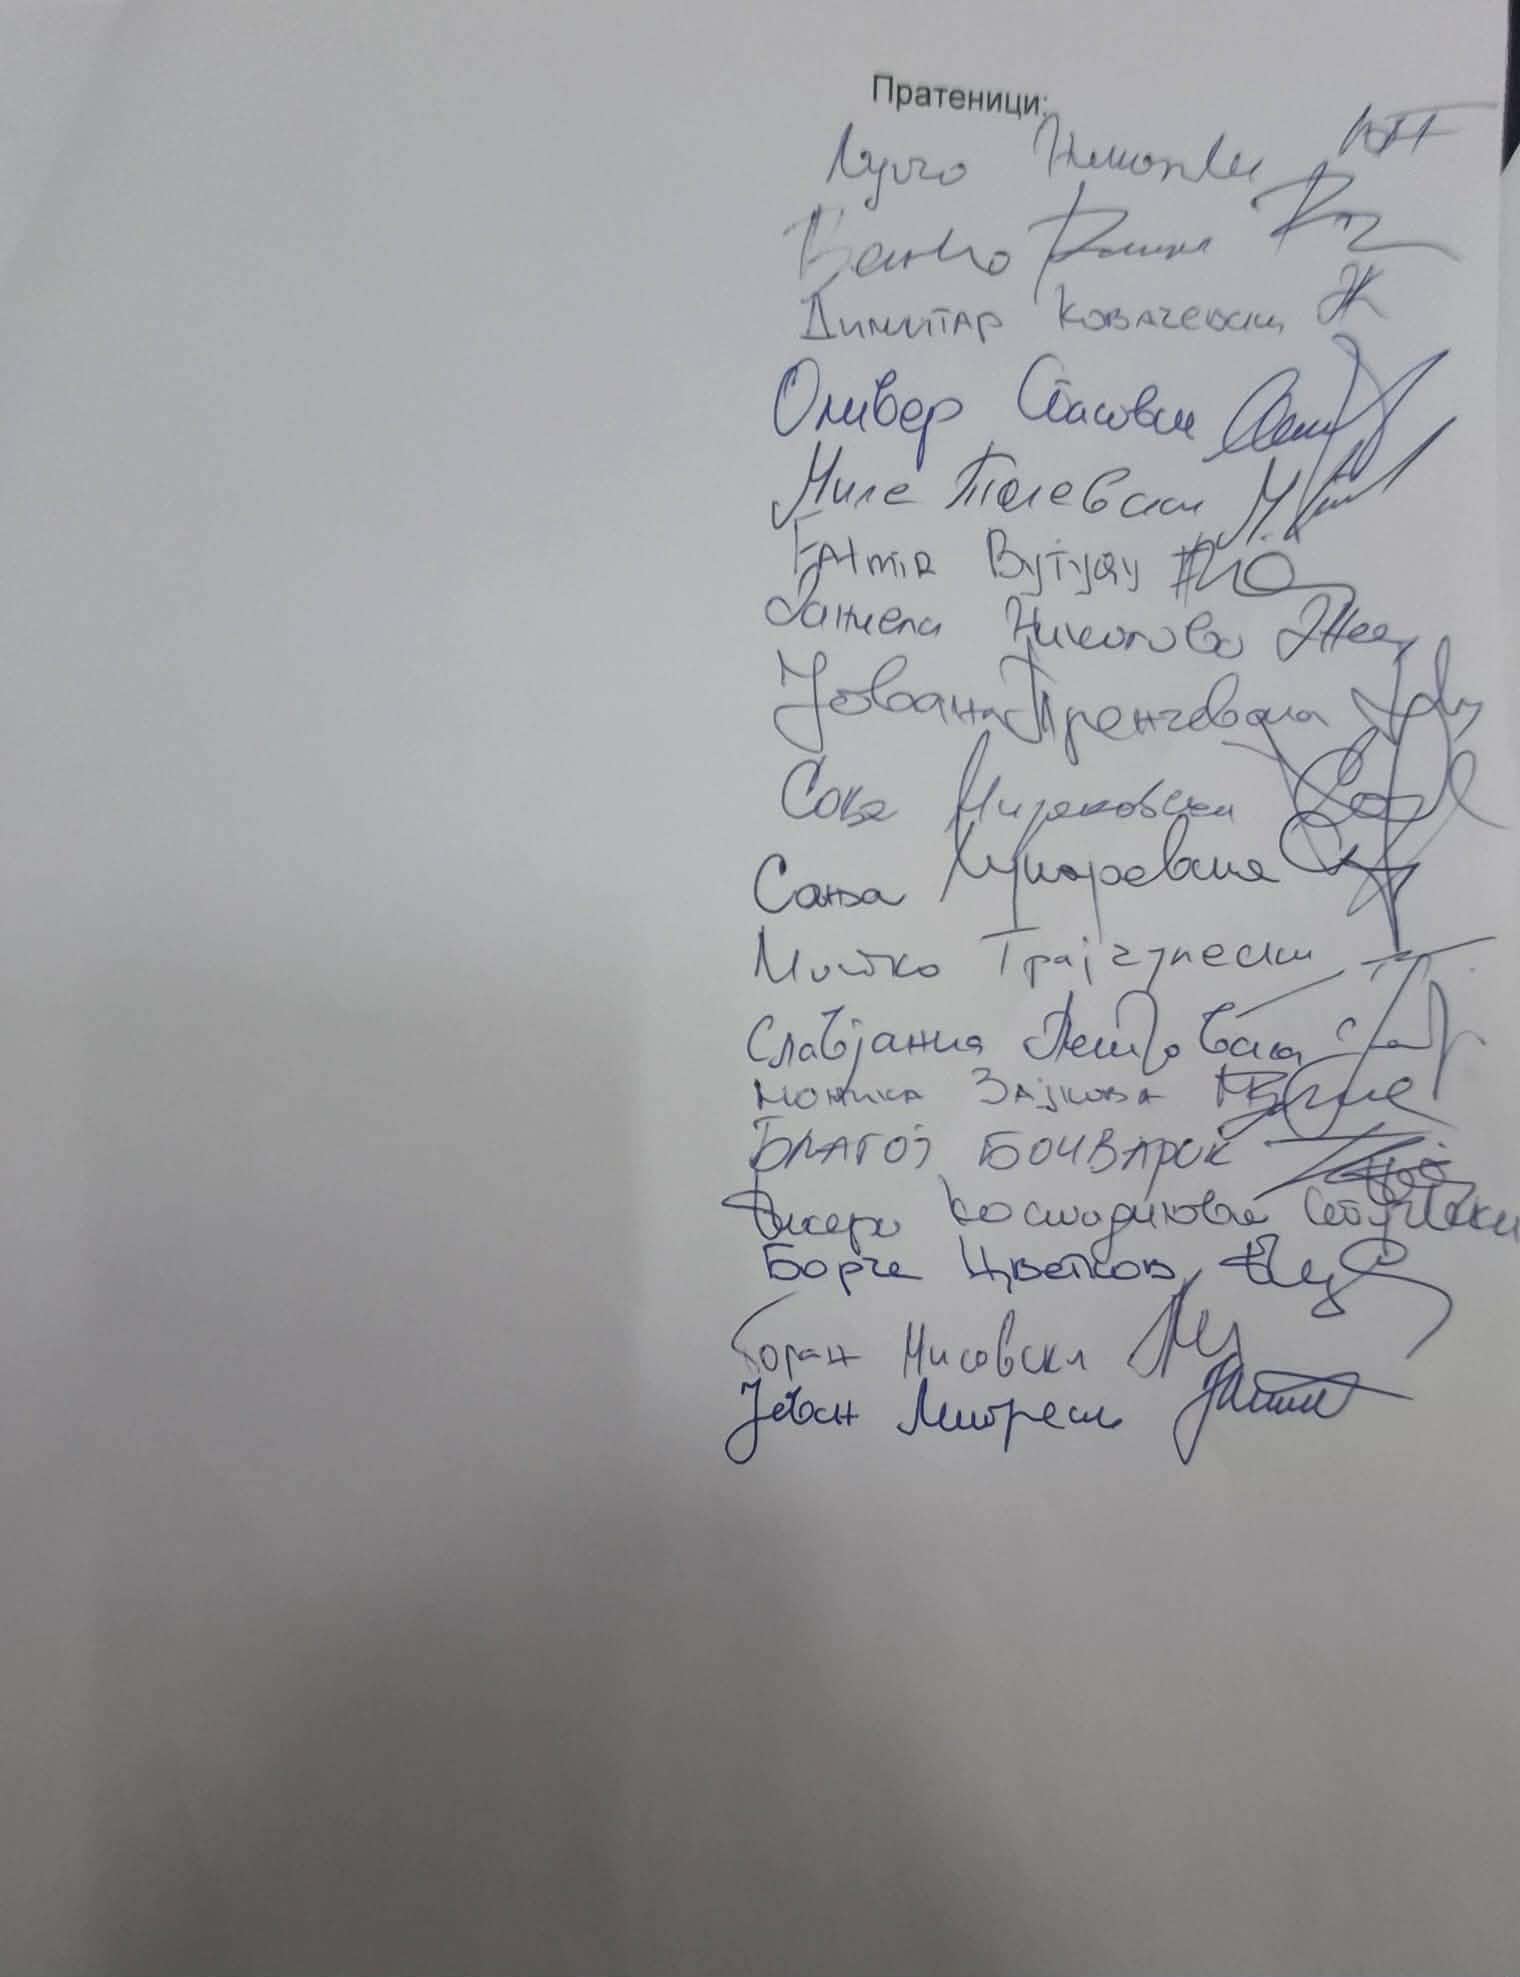 Пратеници:
Лупчо Николовски
Димитар Ковачевски
Оливер Спасовски
Миле Талевски
Fatmir Bytyqy
Даниела Николова
Јована Тренчевска
Соња Мираковска
Сања Лукаревска
Митко Трајчулески
Славјанка Петровска
Моника Зајкова
Благој Бочварски
Костадиновска Стојчевски
Борче Цветков
Горан Мисовски
Јован Митрески